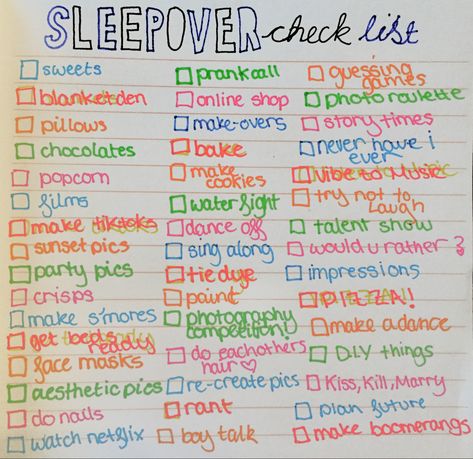 SLEEPOVER check list
sweets
blanketden
pillows
chocolates
popcorn
films
make tiktoks
sunset pics
party pics
crisps
make s'mores
get beds ready
face masks
aesthetic pics
do nails
watch netflix
prankcall
online shop
make-overs
bake
make
cookies
waterfight
dance off
sing along
tie dye
paint
photography
competition!
do eachothers
hair♡
re-create pics
rant
boy talk
guessing
games
photo roulette
story times
never have i
ever
Vibe to Music
try not to
laugh
talent show
would u rather?
impressions
PIZZA!
make a dance
D.I.Y things
Kiss, Kill, Marry
plan future
make boomerangs